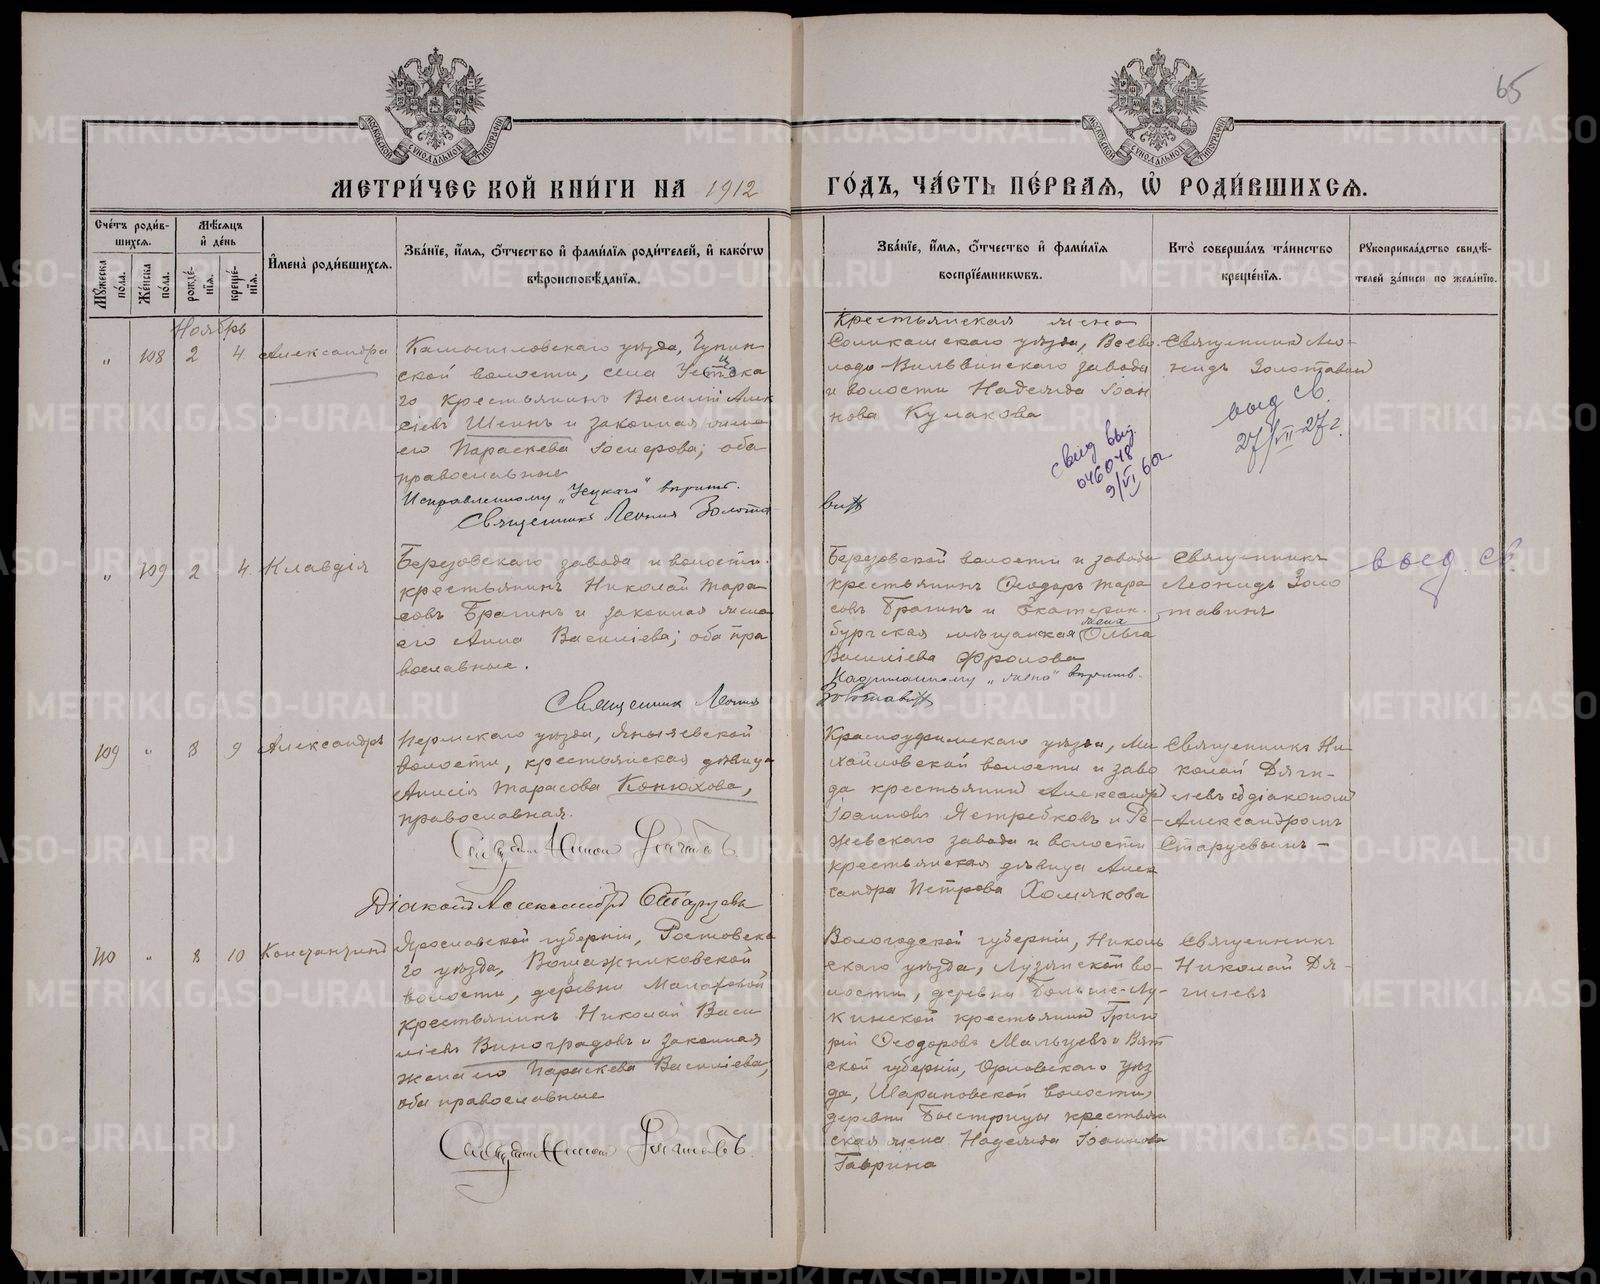 65
МОСКОВСКОЙ СѴНОДАЛЬНОЙ ТИПОГРАФІИ
МОСКОВСКОЙ СѴНОДАЛЬНОЙ ТИПОГРАФІИ
МЕТРИ́ЧЕСКОЙ КНИ́ГИ НА 1912
ГО́ДЪ, ЧА́СТЬ ПЕ́РВАѦ, Ѡ҆ РОДИ́ВШИХСѦ.
Сче́тъ роди́в-
шихсѧ.
Мꙋ́жеска по́ла.
Же́нска по́ла.
Мѣ́сѧцъ
и҆ де́нь
рожде́-
нїѧ.
креще́-
нїѧ.
И҆мена̀ роди́вшихсѧ.
Зва́нїе, и҆́мѧ, ѻ҆́тчество и҆ фами́лїѧ роди́телей, и҆ како́гѡ
вѣроисповѣ́данїѧ.
Зва́нїе, и҆́мѧ, ѻ҆́тчество и҆ фами́лїѧ
воспрїе́мникѡвъ.
Кто̀ соверша́лъ та́инство
креще́нїѧ.
Рꙋкоприкла́дство свидѣ́-
телей за́писи по жела́нїю.
Ноябрь
„ 108 2 4 Александра
Камышловскаго уѣзда, Чупин
ской волости, села Усцка
го крестьянинъ Василій Алек
сіевъ Шеинъ и законная жена
его Параскева Іосифова; оба
православные
Исправленному „Усцкаго" вѣрить.
Священникъ Леонид Золота
вин
Крестьянская жена
Соликамскаго уѣзда, Всево-
лодо-Вильвинскаго завода
и волости Надежда Іоан
нова Кулакова
Священник Лео-
нидъ Золотавин
выд св.
27/VII-27 г.
свид выд.
046048
9/VI 60г
„ 109 2 4 Клавдія
Березовскаго завода и волости
крестьянинъ Николай Тара
совъ Брагинъ и законная жена
его Анна Васильева; оба пра
вославные.
Священник Леонид
Золотавин
Березовской волости и завода
крестьянинъ Ѳеодоръ Тара
совъ Брагинъ и Екатерин-
бургская мѣщанская жена Ольга
Васильева Фролова
Надписанному „жена" вѣрить.
Священникъ
Леонидъ Золо
тавинъ
выд. св.
109 „ 8 9 Александръ
Пермскаго уѣзда, Янычевской
волости, крестьянская дѣвица
Анисія Тарасова Конюхова,
православная.
Священник Николай Дягилевъ
Діаконъ Александръ Старцевъ
Красноуфимскаго уѣзда, Ми
хайловской волости и заво
да крестьянин Александр
Іоанновъ Ястребковъ и Ре-
жевскаго завода и волости
крестьянская дѣвица Алек
сандра Петрова Хомякова
Священникъ Ни-
колай Дяги-
левъ с діаконом
Александромъ
Старцевымъ-
110 „ 8 10 Константинъ
Ярославской губерніи, Ростовска
го уѣзда, Вощажниковской
волости, деревни Малаховой
крестьянинъ Николай Васи
ліевъ Виноградовъ и законная
жена его Параскева Василіева,
оба православные
Священник Николай Дягилевъ
Вологодской губерніи, Николь
скаго уѣзда, Лузянской во-
лости, деревни Больше-Лу-
кинской крестьянинъ Григо
рій Ѳеодоровъ Мальцевъ и Вят
ской губерніи, Орловскаго уѣз
да, Шарановской волости,
деревни Быстрицы крестьян
ская жена Надежда Іоаннова
Гаврина
Священникъ
Николай Дя-
гилевъ
METRIKI.GASO-URAL.RU